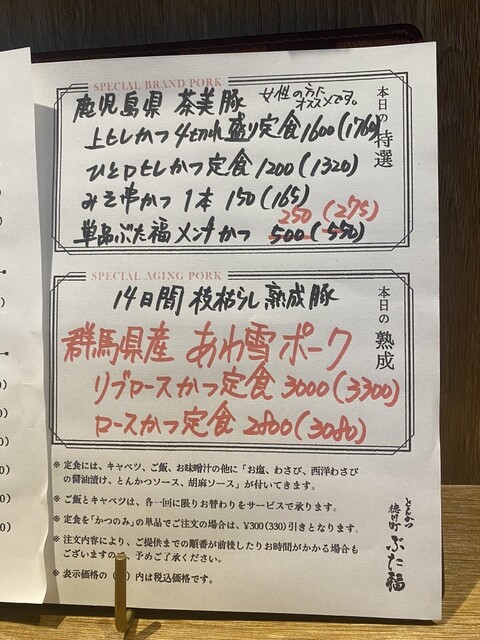 SPECIAL BRAND PORK
本日の特選
鹿児島県 茶美豚
女性の方に
オススメです。
上ヒレかつ 4切れ盛り定食 1600(1760)
ひと口ヒレかつ定食 1200(1320)
みそ串かつ 1本 150(165)
250 (275)
単品ぶた福メンチかつ 500(550)
SPECIAL AGING PORK
本日の熟成
14日間 枝枯らし熟成豚
群馬県産 あわ雪ポーク
リブロースかつ定食 3000(3300)
ロースかつ定食 2800(3080)
※ 定食には、キャベツ、ご飯、お味噌汁の他に「お塩、わさび、西洋わさび
の醤油漬け、とんかつソース、胡麻ソース」が付いてきます。
※ ご飯とキャベツは、各一回に限りお替わりをサービスで承ります。
※ 定食を「かつのみ」の単品でご注文の場合は、¥300(330)引きとなります。
※ 注文内容により、ご提供までの順番が前後したりお時間がかかる場合も
ございますので、予めご了承ください。
※ 表示価格の( )内は税込価格です。
とんかつ
徳川町
ぶた福